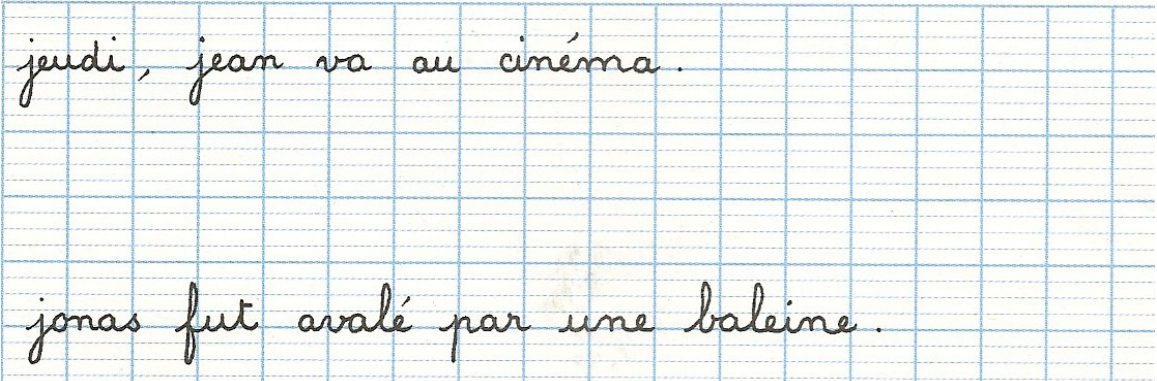 jeudi, jean va au cinéma.
jonas fut avalé par une baleine.